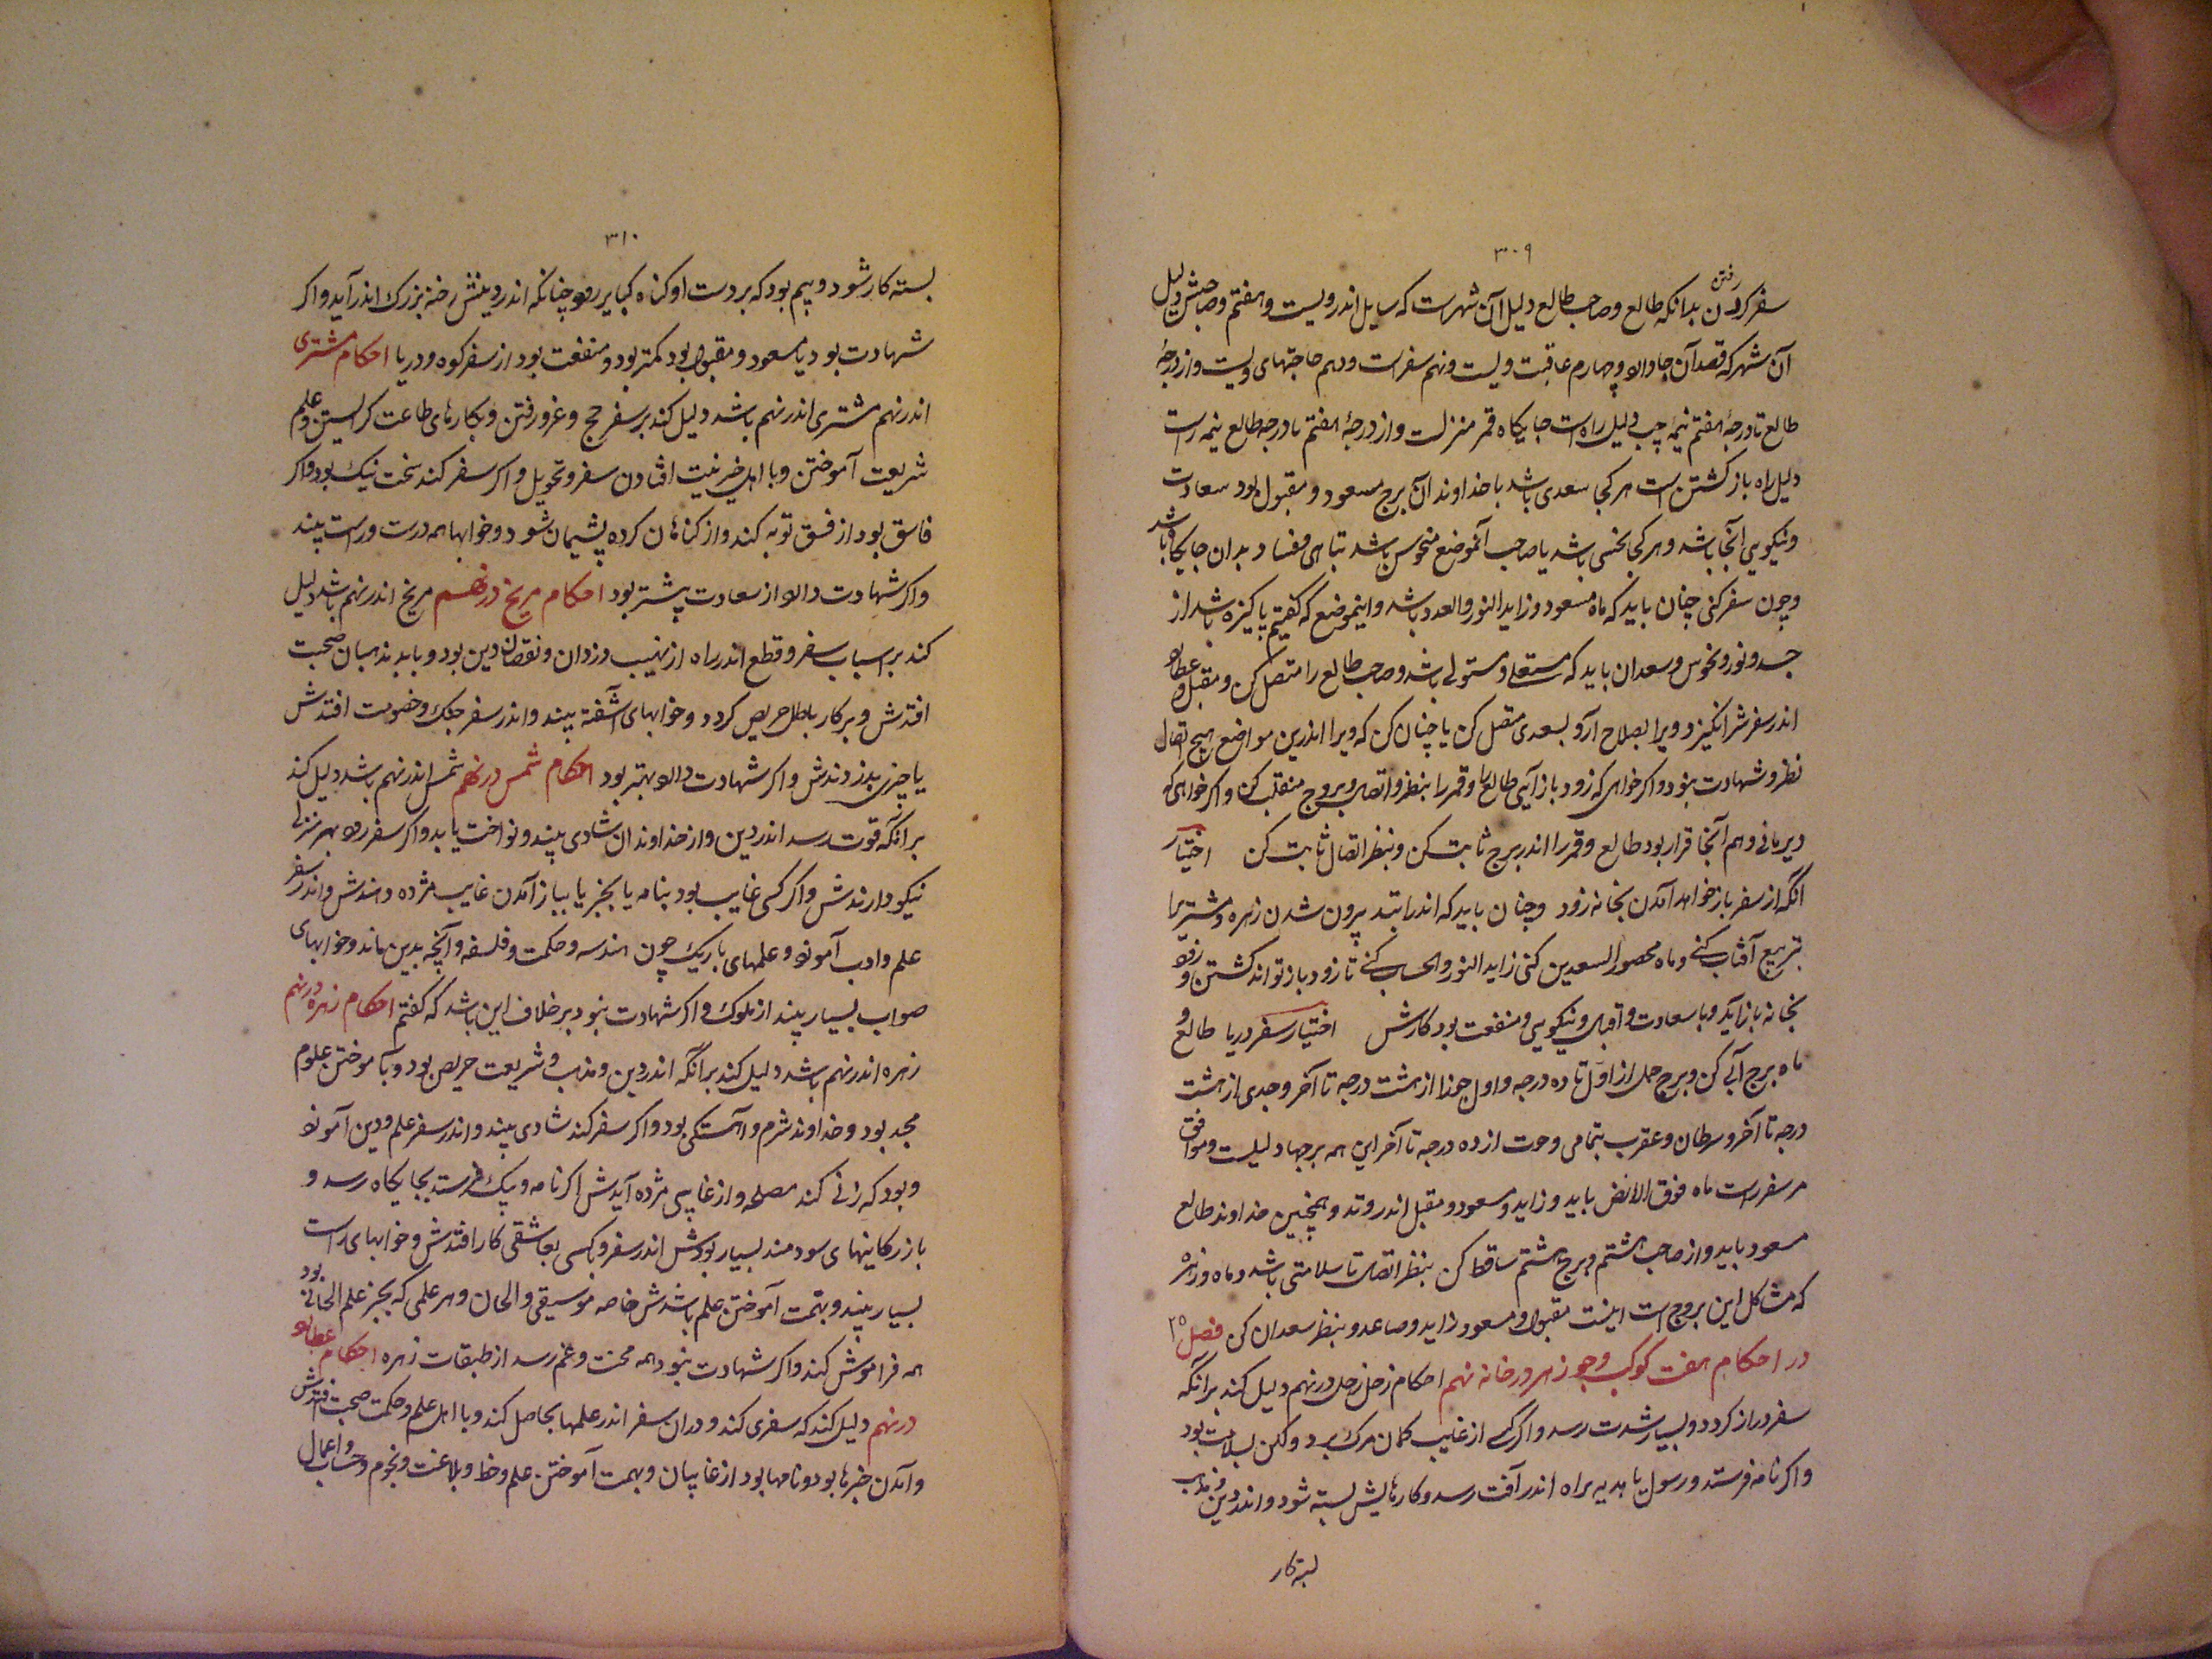 ۳۰۹
سفر کردن رفتن بدانکه طالع و صاحب طالع دلیل آن شهرست که سایل اندرویست و هفتم و صاحبش دلیل
آن شهر که قصد آن جا دارد و چهارم عاقبت ویست و نهم سفرست و دهم حاجتهای ویست و از درجهٔ
طالع تا درجهٔ هفتم نیمهٔ چپ دلیل راه است جایکاه قمر منزلت و از درجهٔ هفتم تا درجه طالع نیمه راست
دلیل راه باز کشتن است هر کجا سعدی باشد یا خداوند آن برج مسعود و مقبول بود سعادت
و نیکویی آنجا باشد و هر کجا نحسی باشد یا صاحب آنموضع منحوس باشد تباهی و فساد بدان جایکاه باشد
و چون سفر کنی چنان باید که ماه مسعود و زاید النور والعدد باشد و اینموضع که کفتیم پاکیزه باشد از
جسد و نور و نحوس و سعدان باید که مستعلی و مستولی باشد و صاحب طالع را متصل کن و مقبل و عطارد
اندر سفر شر انکیزد ویرا بصلاح آر و بسعدی متصل کن یا چنان کن که ویرا اندرین مواضع هیچ اتصال
نظر و شهادت نبود و اکر خواهی که زود باز آیی طالع را و قمر را بنظر و اتصال و بروج منقلب کن و اکر خواهی که
دیر مانی و هم آنجا قرار بود طالع و قمر را اندر برج ثابت کن و بنظر اتصال ثابت کن اختیار
آنکه از سفر باز خواهد آمدن بخانه زود و چنان باید که اندر ابتدا بیرون شدن زهره و مشتری را
بتربیع آفتاب کنی و ماه محصور السعدین کنی زاید النور والحساب کنی تا زود باز تواند کشتن و زود
بخانه باز آید و با سعادت و اقبال و نیکویی و منفعت بود کارش اختیار سفر دریا طالع و
ماه برج آبی کن و برج حمل از اول تا ده درجه و اول جوزا از هشت درجه تا آخر و جدی از هشت
درجه تا آخر و سرطان و عقرب بتمامی و حوت از ده درجه تا آخر این همه برجها دلیلست و موافق
مر سفر راست ماه فوق الارض باید و زاید و مسعود و مقبل اندر وتد و همچنین خداوند طالع
مسعود باید و از صاحب هشتم و برج هشتم ساقط کن بنظر اتصال تا سلامتی باشد و ماه و زهره
که مشاکل این بروج است اینست مقبول و مسعود زاید و صاعد و بنظر سعدان کن فصل ۲۵
در احکام هفت کوکب و جوزهر در خانه نهم احکام زحل زحل در نهم دلیل کند برانکه
سفر دراز کردد و بسیار شدت رسد و اکر کسی از غایب کمان مرک برد ولکن بسلامت بود
و اکر نامه فرستد و رسول یا هدیه براه اندر آفت رسد و کارهایش بسته شود و اندر دین و مذهب
بسته کار
۳۱۰
بسته کار شود و بیم بود که بر دست او کناه کبایر رود چنانکه اندر دینش رخنه بزرک اندر آید و اکر
شهادت بود یا مسعود و مقبول بود کمتر بود و منفعت بود از سفر کوه و دریا احکام مشتری
اندر نهم مشتری اندر نهم باشد دلیل کند بر سفر حج و غزو رفتن و بکارهای طاعت کریستن و علم
شریعت آموختن و با اهل خیر نیت افتادن سفر و تحویل و اکر سفر کند سخت نیک بود و اکر
فاسق بود از فسق توبه کند و از کناهان کرده پشیمان شود و خوابها همه درست و راست بیند
و اکر شهادت دارد از سعادت بیشتر بود احکام مریخ در نهم مریخ اندر نهم باشد دلیل
کند بر اسباب سفر و قطع اندر راه از نهیب دزدان و نقصان دین بود و با بد مذهبان صحبت
افتدش و بر کار باطل حریص کردد و خوابهای آشفته بیند و اندر سفر جنک و خصومت افتدش
یا چیزی بدزدندش و اکر شهادت دارد بهتر بود احکام شمس در نهم شمس اندر نهم باشد دلیل کند
برانکه قوت رسد اندر دین و از خداوندان شادی بیند و نواخت یابد و اکر سفر رود بهر منزلی
نیکو دارندش و اکر کسی غایب بود بنامه یا بخبر یا بباز آمدن غایب مژده دهندش و اندر سفر
علم و ادب آموزد و علمهای باریک چون هندسه و حکمت و فلسفه و آنچه بدین ماند و خوابهای
صواب بسیار بیند از ملوک و اکر شهادت نبود بر خلاف این باشد که کفتم احکام زهره در نهم
زهره اندر نهم باشد دلیل کند برانکه اندر دین و مذهب و شریعت حریص بود و بآموختن علوم
مجد بود و خداوند شرم و آهستکی بود و اکر سفر کند شادی بیند و اندر سفر علم و دین آموزد
و بود که زنی کند مصلحه و از غایبی مژده آیدش اکر نامه و پیک فرستد بجایکاه رسد و
بازرکانیهای سودمند بسیار بودش اندر سفر و با کسی بعاشقی کار افتدش و خوابهای راست
بسیار بیند و بهمت آموختن علم باشدش خاصه موسیقی و الحان و هر علمی که بجز علم الحانی بود
همه فراموش کند و اکر شهادت نبود همه محنت و غم رسد از طبقات زهره احکام عطارد
در نهم دلیل کند که سفری کند و دران سفر اندر علمها بحاصل کند و با اهل علم و حکمت صحبت افتدش
و آمدن خبرها بود و نامها بود از غایبان و بهمت آموختن علم و خط و بلاغت و نجوم و حساب و اعمال